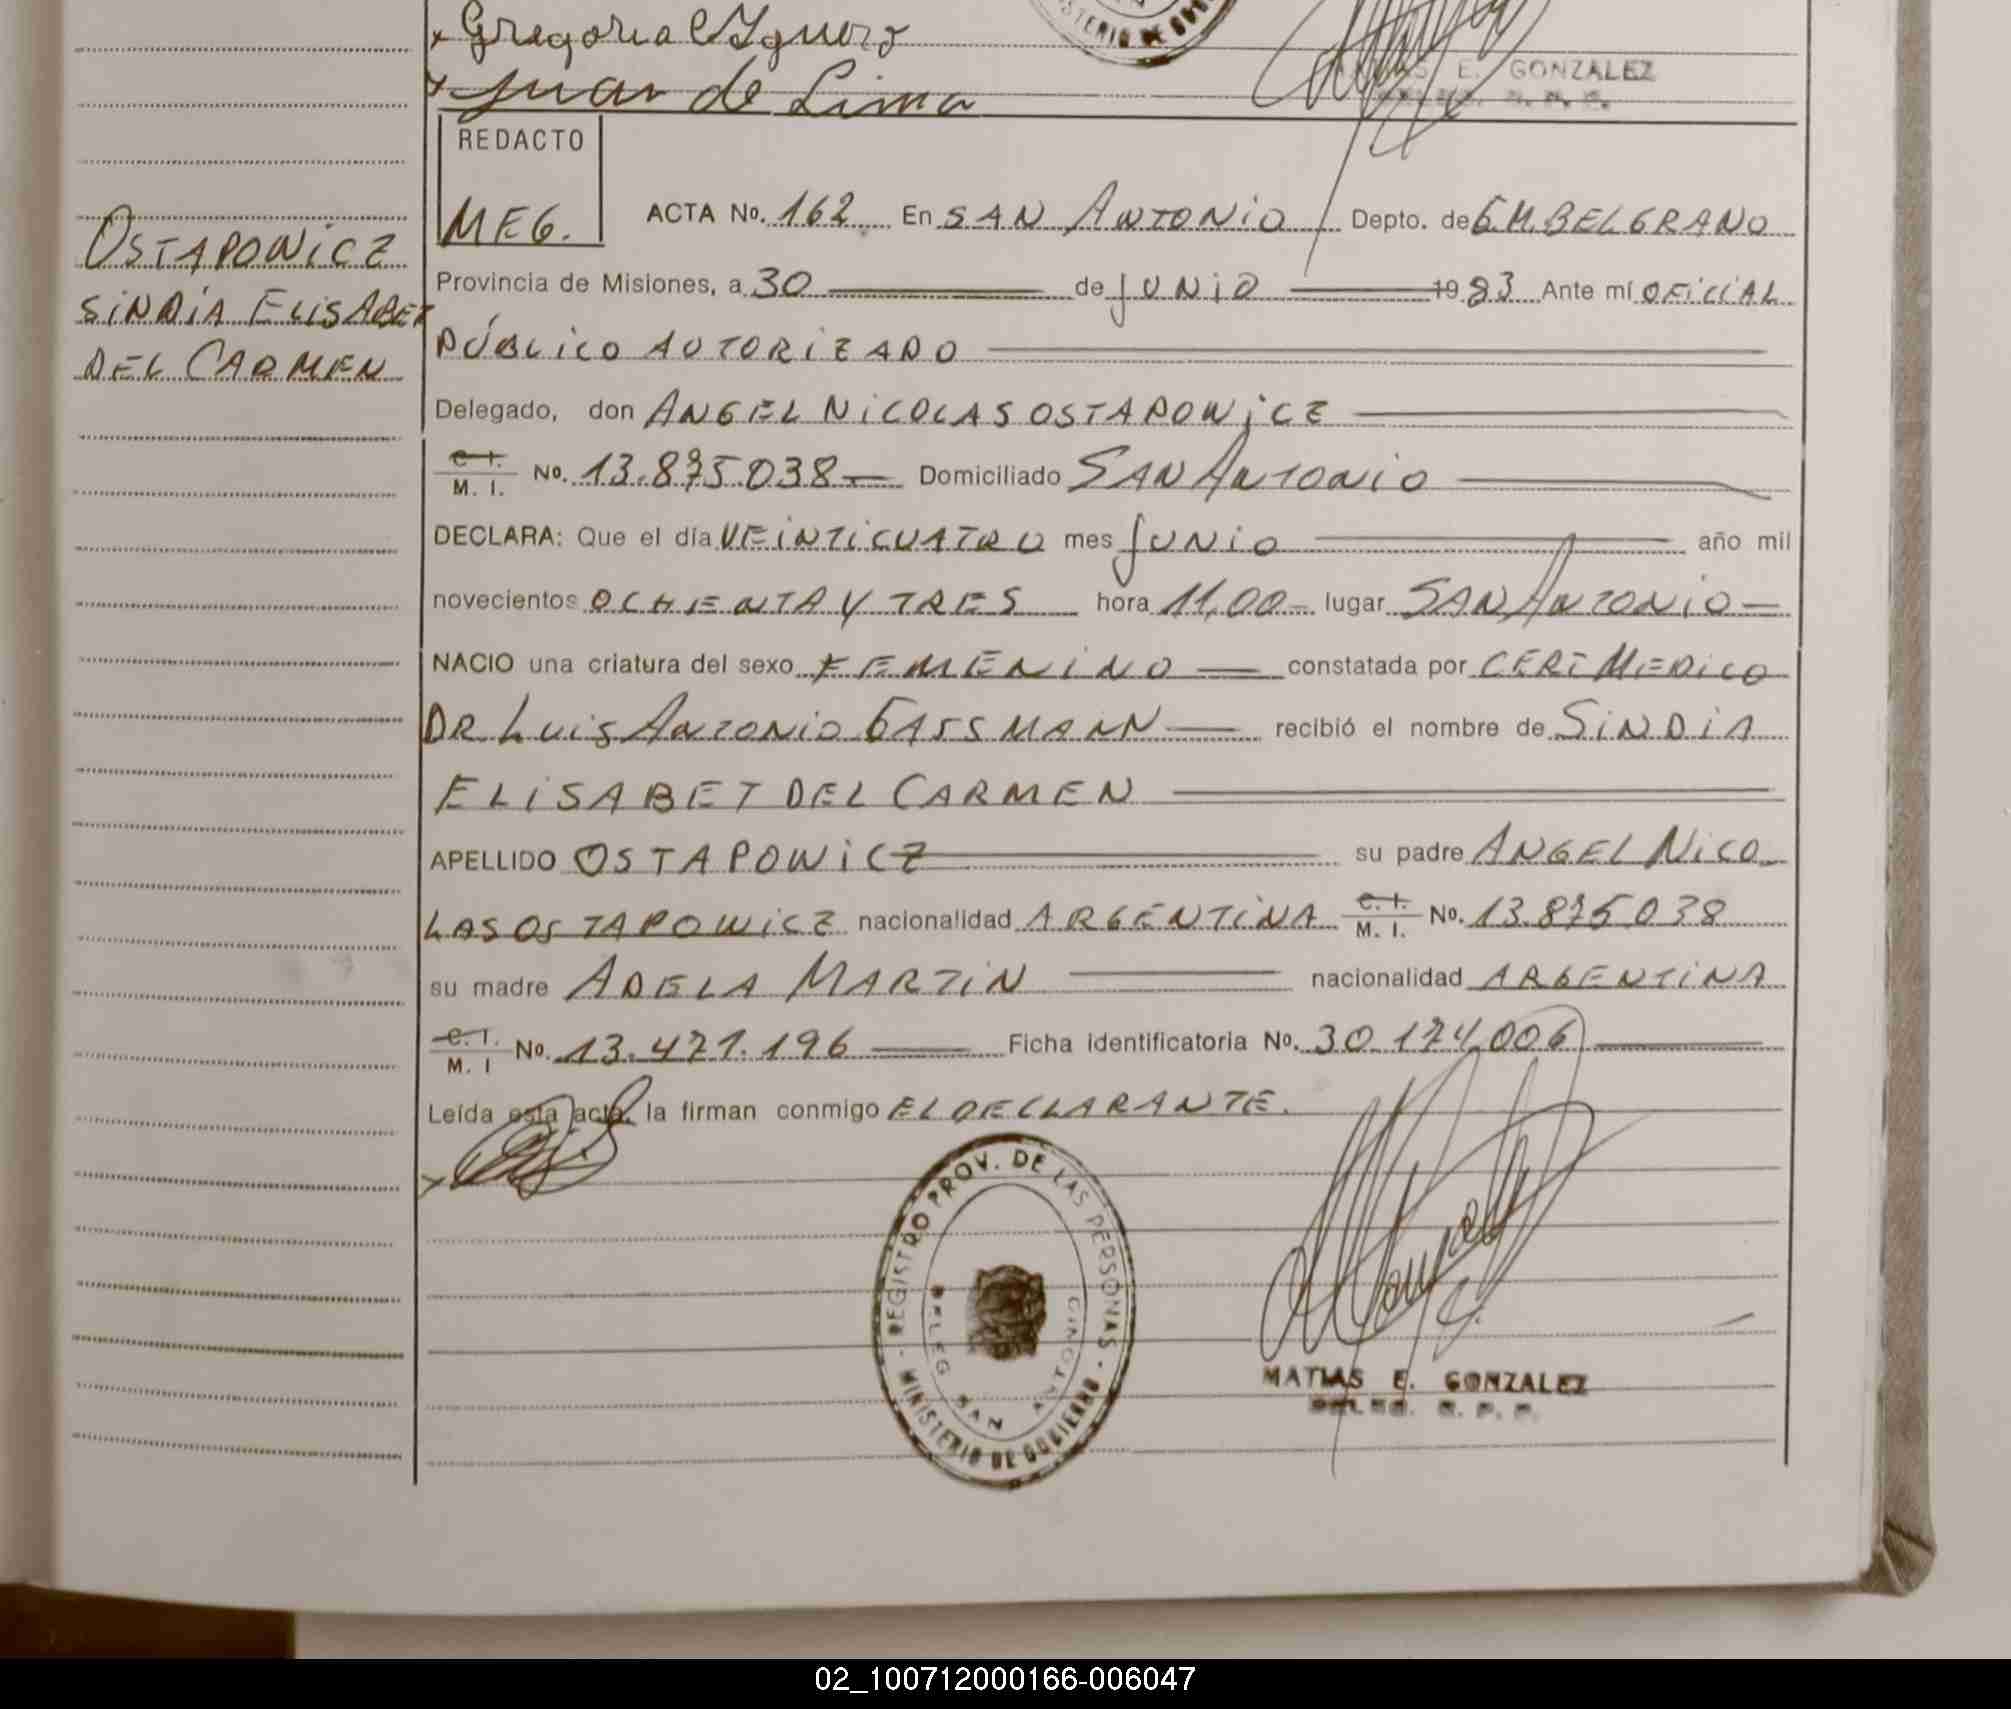 Gregoria
Juan de Lima
MINISTERIO DE GOB
MATIAS E. GONZALEZ
REDACTO
MEG.
OSTAPOWICZ
SINDIA ELISABET
DEL CARMEN
ACTA No. 162 En SAN ANTONIO Depto. de G.M.BELGRANO
Provincia de Misiones, a 30 de JUNIO 1983 Ante mí OFICIAL
PÚBLICO AUTORIZADO
Delegado, don ANGEL NICOLAS OSTAPOWICZ
C.I. M. I. No. 13.875.038 Domiciliado SAN ANTONIO
DECLARA: Que el día VEINTICUATRO mes JUNIO año mil
novecientos OCHENTA Y TRES hora 11,00 lugar SAN ANTONIO
NACIO una criatura del sexo FEMENINO constatada por CERT MEDICO
DR LUIS ANTONIO GASSMANN recibió el nombre de SINDIA
ELISABET DEL CARMEN
APELLIDO OSTAPOWICZ su padre ANGEL NICO
LAS OSTAPOWICZ nacionalidad ARGENTINA C.I. M. I. No. 13.875.038
su madre ADELA MARTIN nacionalidad ARGENTINA
C.I. M. I No. 13.471.196 Ficha identificatoria No. 30.174.006
Leída esta acta, la firman conmigo EL DECLARANTE.
REGISTRO PROV. DE LAS PERSONAS - MINISTERIO DE GOBIERNO -
DELEG SAN ANTONIO
MATIAS E. GONZALEZ
DELEG. R. P. P.
02_100712000166-006047